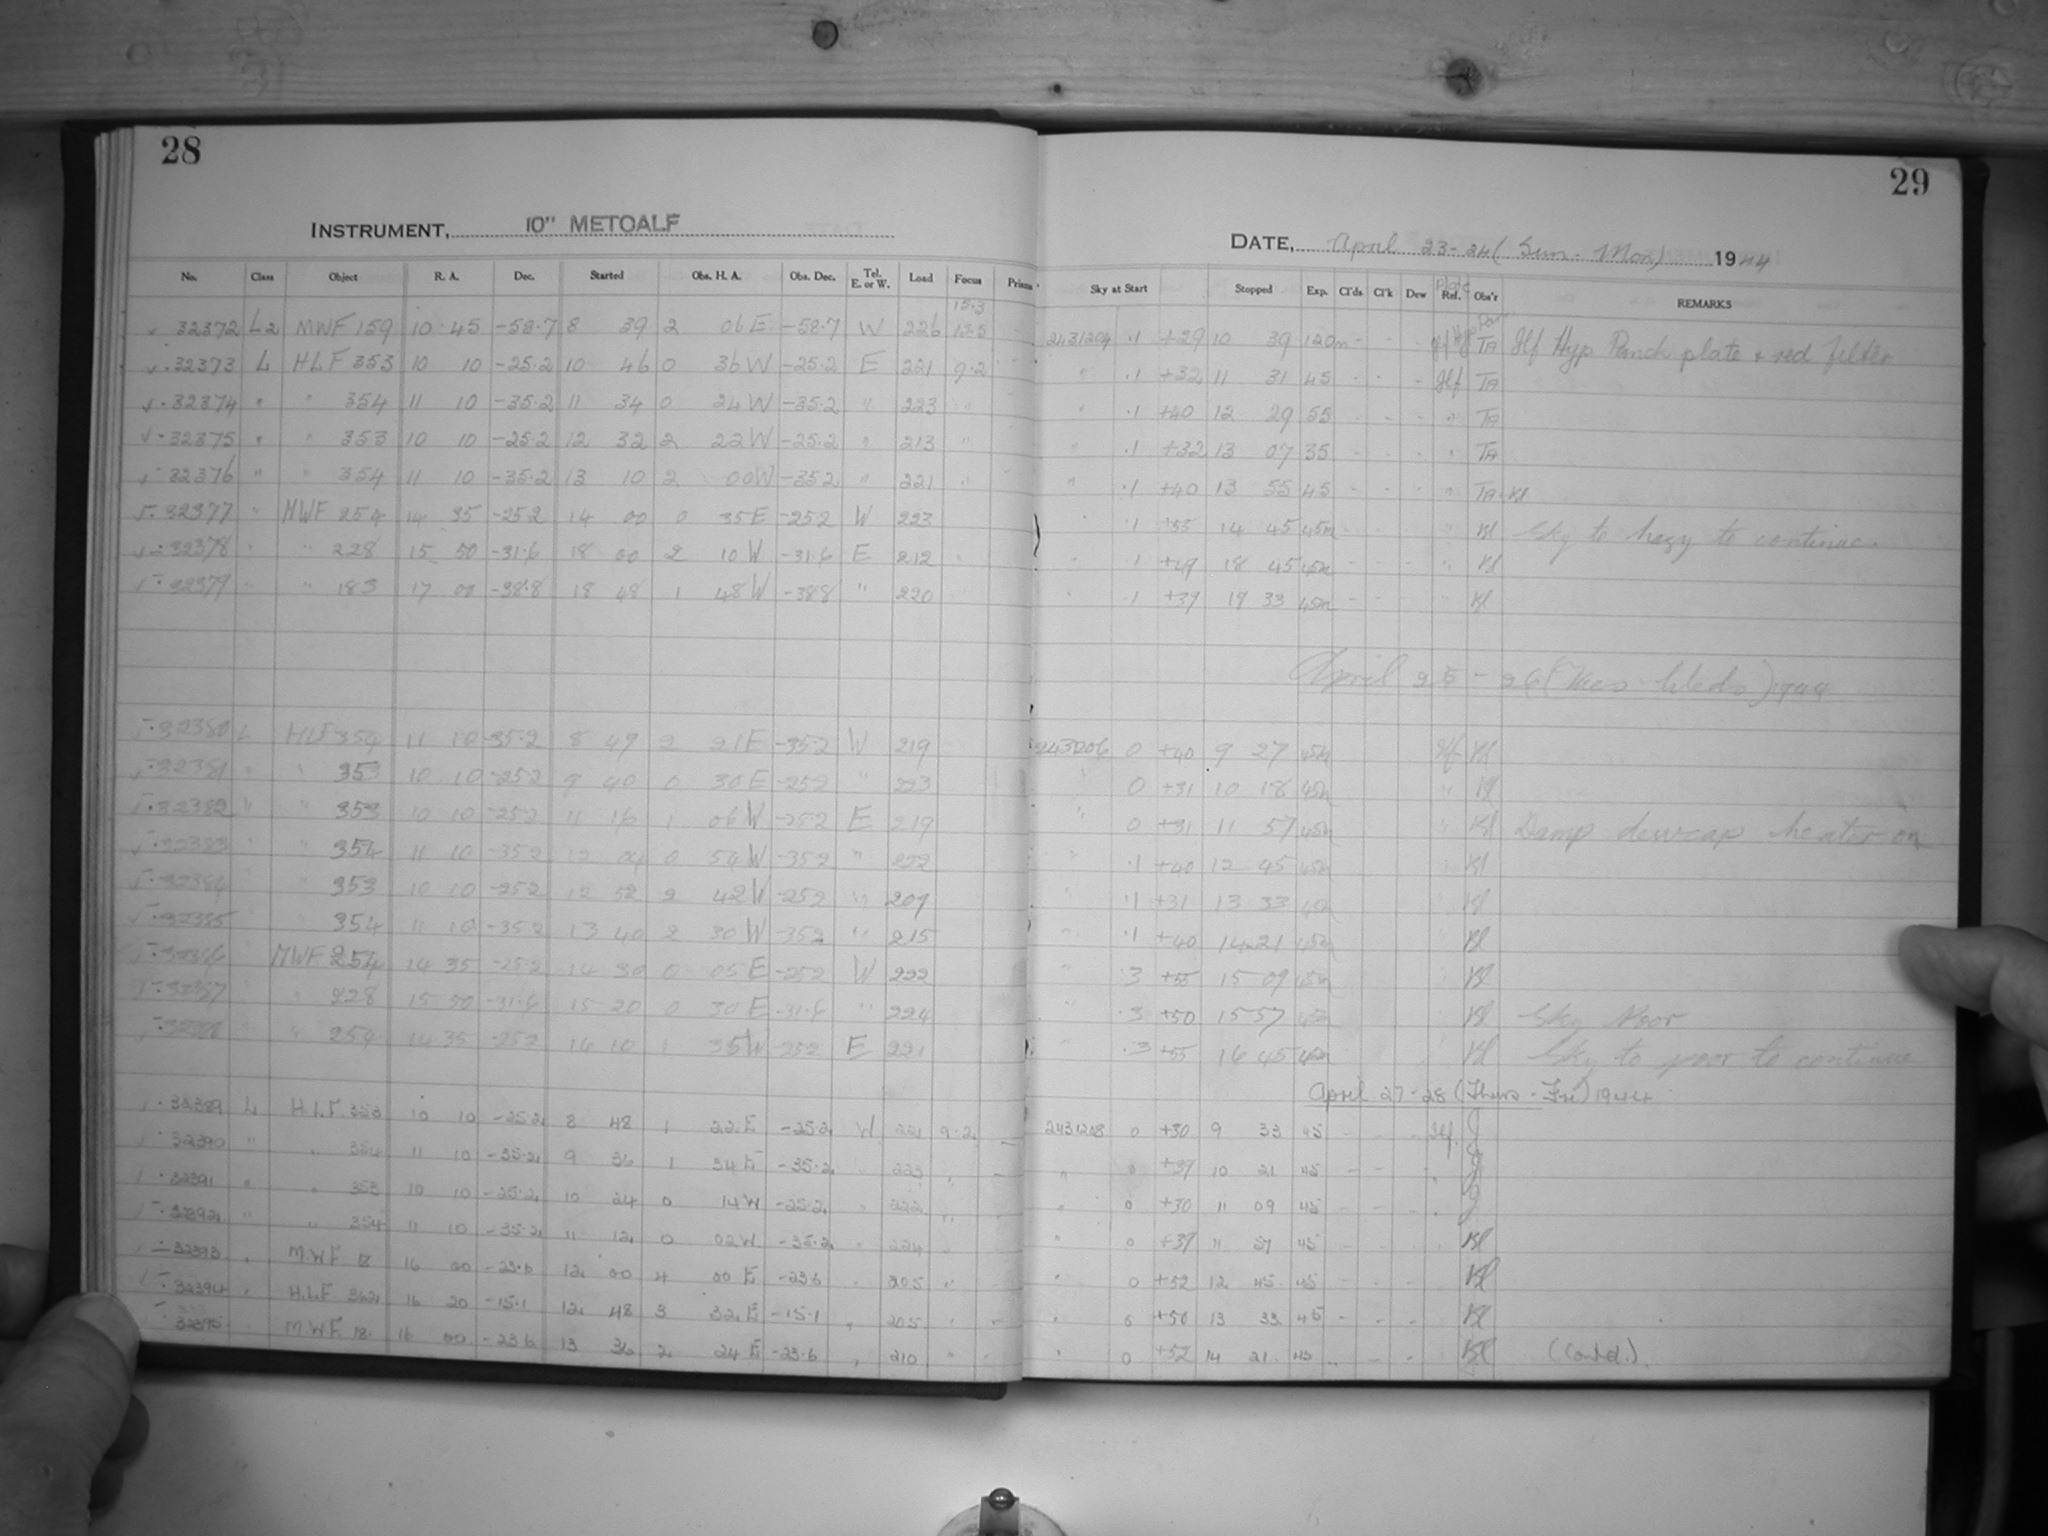 28
INSTRUMENT, 10" METCALF
No. Class Object R. A. Dec. Started Obs. H. A. Obs. Dec. Tel. E. or W. Load Focus Prisms
15.3
32372 L2 MWF 159 10 45 -58.7 8 39 2 06 E -58.7 W 226 13.5
32373 L HLF 353 10 10 -25.2 10 46 0 36 W -25.2 E 221 9.2
32374 " " 354 11 10 -35.2 11 34 0 24 W -35.2 " 223 "
32375 " " 353 10 10 -25.2 12 32 2 22 W -25.2 " 213 "
32376 " " 354 11 10 -35.2 13 10 2 00 W -35.2 " 221 "
32377 " MWF 254 14 35 -25.2 14 00 0 35 E -25.2 W 223
32378 " " 228 15 50 -31.6 18 00 2 10 W -31.6 E 212
32379 " " 183 17 00 -38.8 18 48 1 48 W -38.8 " 220
32380 L HLF 354 11 10 -35.2 8 49 2 21 E -35.2 W 219
32381 " " 353 10 10 -25.2 9 40 0 30 E -25.2 " 223
32382 " " 353 10 10 -25.2 11 16 1 06 W -25.2 E 219
32383 " 354 11 10 -35.2 12 04 0 54 W -35.2 " 222
32384 " 353 10 10 -25.2 12 52 2 42 W -25.2 " 207
32385 354 11 10 -35.2 13 40 2 30 W -35.2 " 215
32386 MWF 254 14 35 -25.2 14 30 0 05 E -25.2 W 222
32387 " 228 15 50 -31.6 15 20 0 30 E -31.6 " 224
32388 " 254 14 35 -25.2 16 10 1 35 W -25.2 E 221
32389 L H.L.F. 353 10 10 -25.2 8 48 1 22 E -25.2 W 221 9.2 -
32390 " " 354 11 10 -35.2 9 36 1 34 E -35.2 " 223 " -
32391 " " 353 10 10 -25.2 10 24 0 14 W -25.2 " 222 "
32392 " " 354 11 10 -35.2 11 12 0 02 W -35.2 " 224 "
32393 " M.W.F. 18 16 00 -23.6 12 00 4 00 E -23.6 " 205 "
32394 " H.L.F. 362 16 20 -15.1 12 48 3 32 E -15.1 " 205 " -
32395 M.W.F. 18 16 00 -23.6 13 36 2 24 E -23.6 " 210 " -
29
DATE, April 23-24 (Sun. Mon) 1944
Sky at Start Stopped Exp. Cl'ds Cl'k Dew Plate Ref. Obs'r REMARKS
2431204 .1 +29 10 39 120m - - TA Ilf Hyp Panch plate & red filter
" .1 +32 11 31 45 - - - Ilf TA
" .1 +40 12 29 55 - - - " TA
" .1 +32 13 07 35 - - - " TA
" .1 +40 13 55 45 - - - " TA Bl
.1 +55 14 45 45m - - - " Bl Sky to hazy to continue.
" .1 +49 18 45 45m - - - " Bl
" .1 +37 19 33 45m - - - " Bl
April 25-26 (Tues-Weds) 1944
243206 0 +40 9 27 45m Ilf Bl
" 0 +31 10 18 45m " Bl
" 0 +31 11 57 45m " Bl Damp dewcap heater on
" .1 +40 12 45 45m Bl
.1 +31 13 33 45m Bl
" .1 +40 14 21 45m Bl
" .3 +55 15 09 45m Bl
" .3 +50 15 57 45m Bl Sky Poor
" .3 +55 16 45 45m Bl Sky to poor to continue
April 27-28 (Thurs-Fri) 1944
2431208 0 +30 9 33 45 - - - Ilf. J
" 0 +37 10 21 45 - - - " J
" 0 +30 11 09 45 - - - " J
" 0 +37 11 57 45 - - - Bl
" 0 +52 12 45 45 - - - Bl
" 0 +50 13 33 45 - - - Bl
" 0 +52 14 21 45 - - - Bl (Contd.).